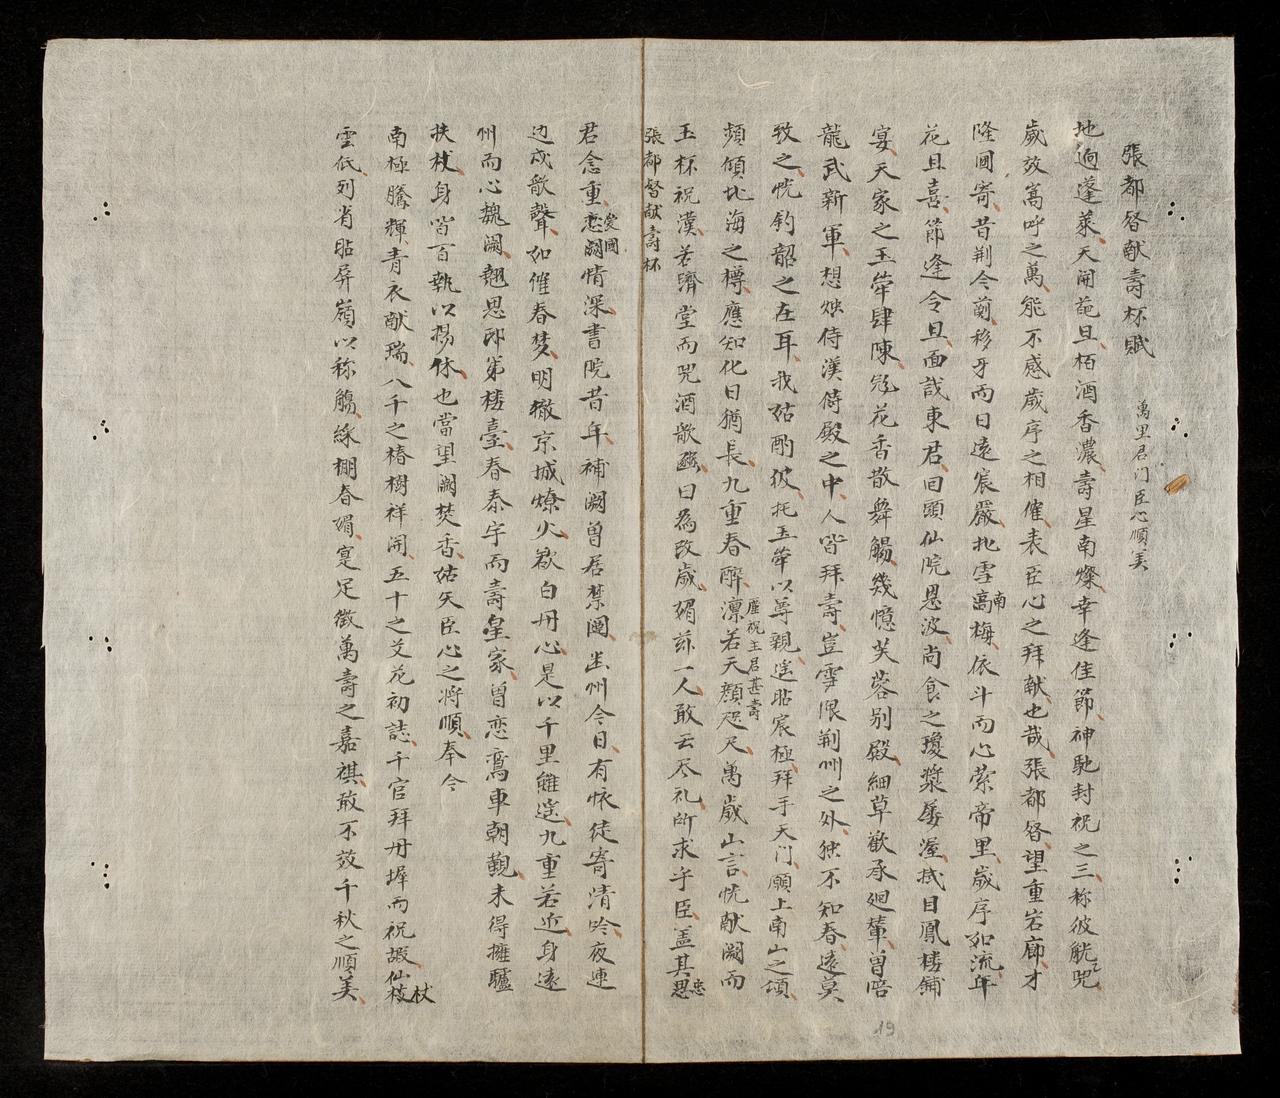 張都督献壽杯賦
萬里君门臣心順美
地逈蓬萊天開葩旦栢酒香濃壽星南燦幸逢佳節神馳封祝之三称彼觥兕
歲效嵩呼之萬能不感歲序之相催表臣心之拜献也哉張都督望重岩廊才
隆閫寄昔荆今薊移牙而日遠宸嚴北雪南梅依斗而心萦帝里歲序如流年
花且喜節逢令旦面哉東君回頭仙院恩波尚食之瓊漿屡渥拭目鳳楼舖
宴天家之玉斚肆陳冠花香散舞觴幾憶芙蓉别殿細草歡承廻輦曾陪
龍武新軍想烛侍漢侍殿之中人皆拜壽豈雪限荆州之外独不知春遠莫
致之恍鈞韶之在耳我姑酌彼托玉斚以尊親遥贴宸極拜手天门願上南山之頌
頻傾北海之樽應知化日猶長九重春酔凛若天顏咫尺萬歲山言恍献闕而
虔祝王君甚壽
玉杯祝漢若躋堂而兕酒歌豳曰為改歲媚茲一人敢云尽礼所求乎臣盖其忠
張都督献壽杯
君念重恋闕情深書院昔年補闕曾居禁闥幽州今日有怀徒寄清吟夜連
愛國
边戍歌聲如催春梦明徹京城燎火歇白丹心是以千里雖遥九重若近身遠
州而心魏闕翹思邸第楼臺春泰宇而壽皇家曽恋鸞車朝觐未得擁驢
扶杖身皆百執以揚休也當望闕焚香姑矢臣心之将順奉今
南極騰輝青衣献瑞八千之椿樹祥開五十之艾花初誌千官拜丹墀而祝嘏仙杖
雲低列省贴屏嶺以称觴綵棚春媚寔足徴萬壽之嘉祺敢不效千秋之順美
19